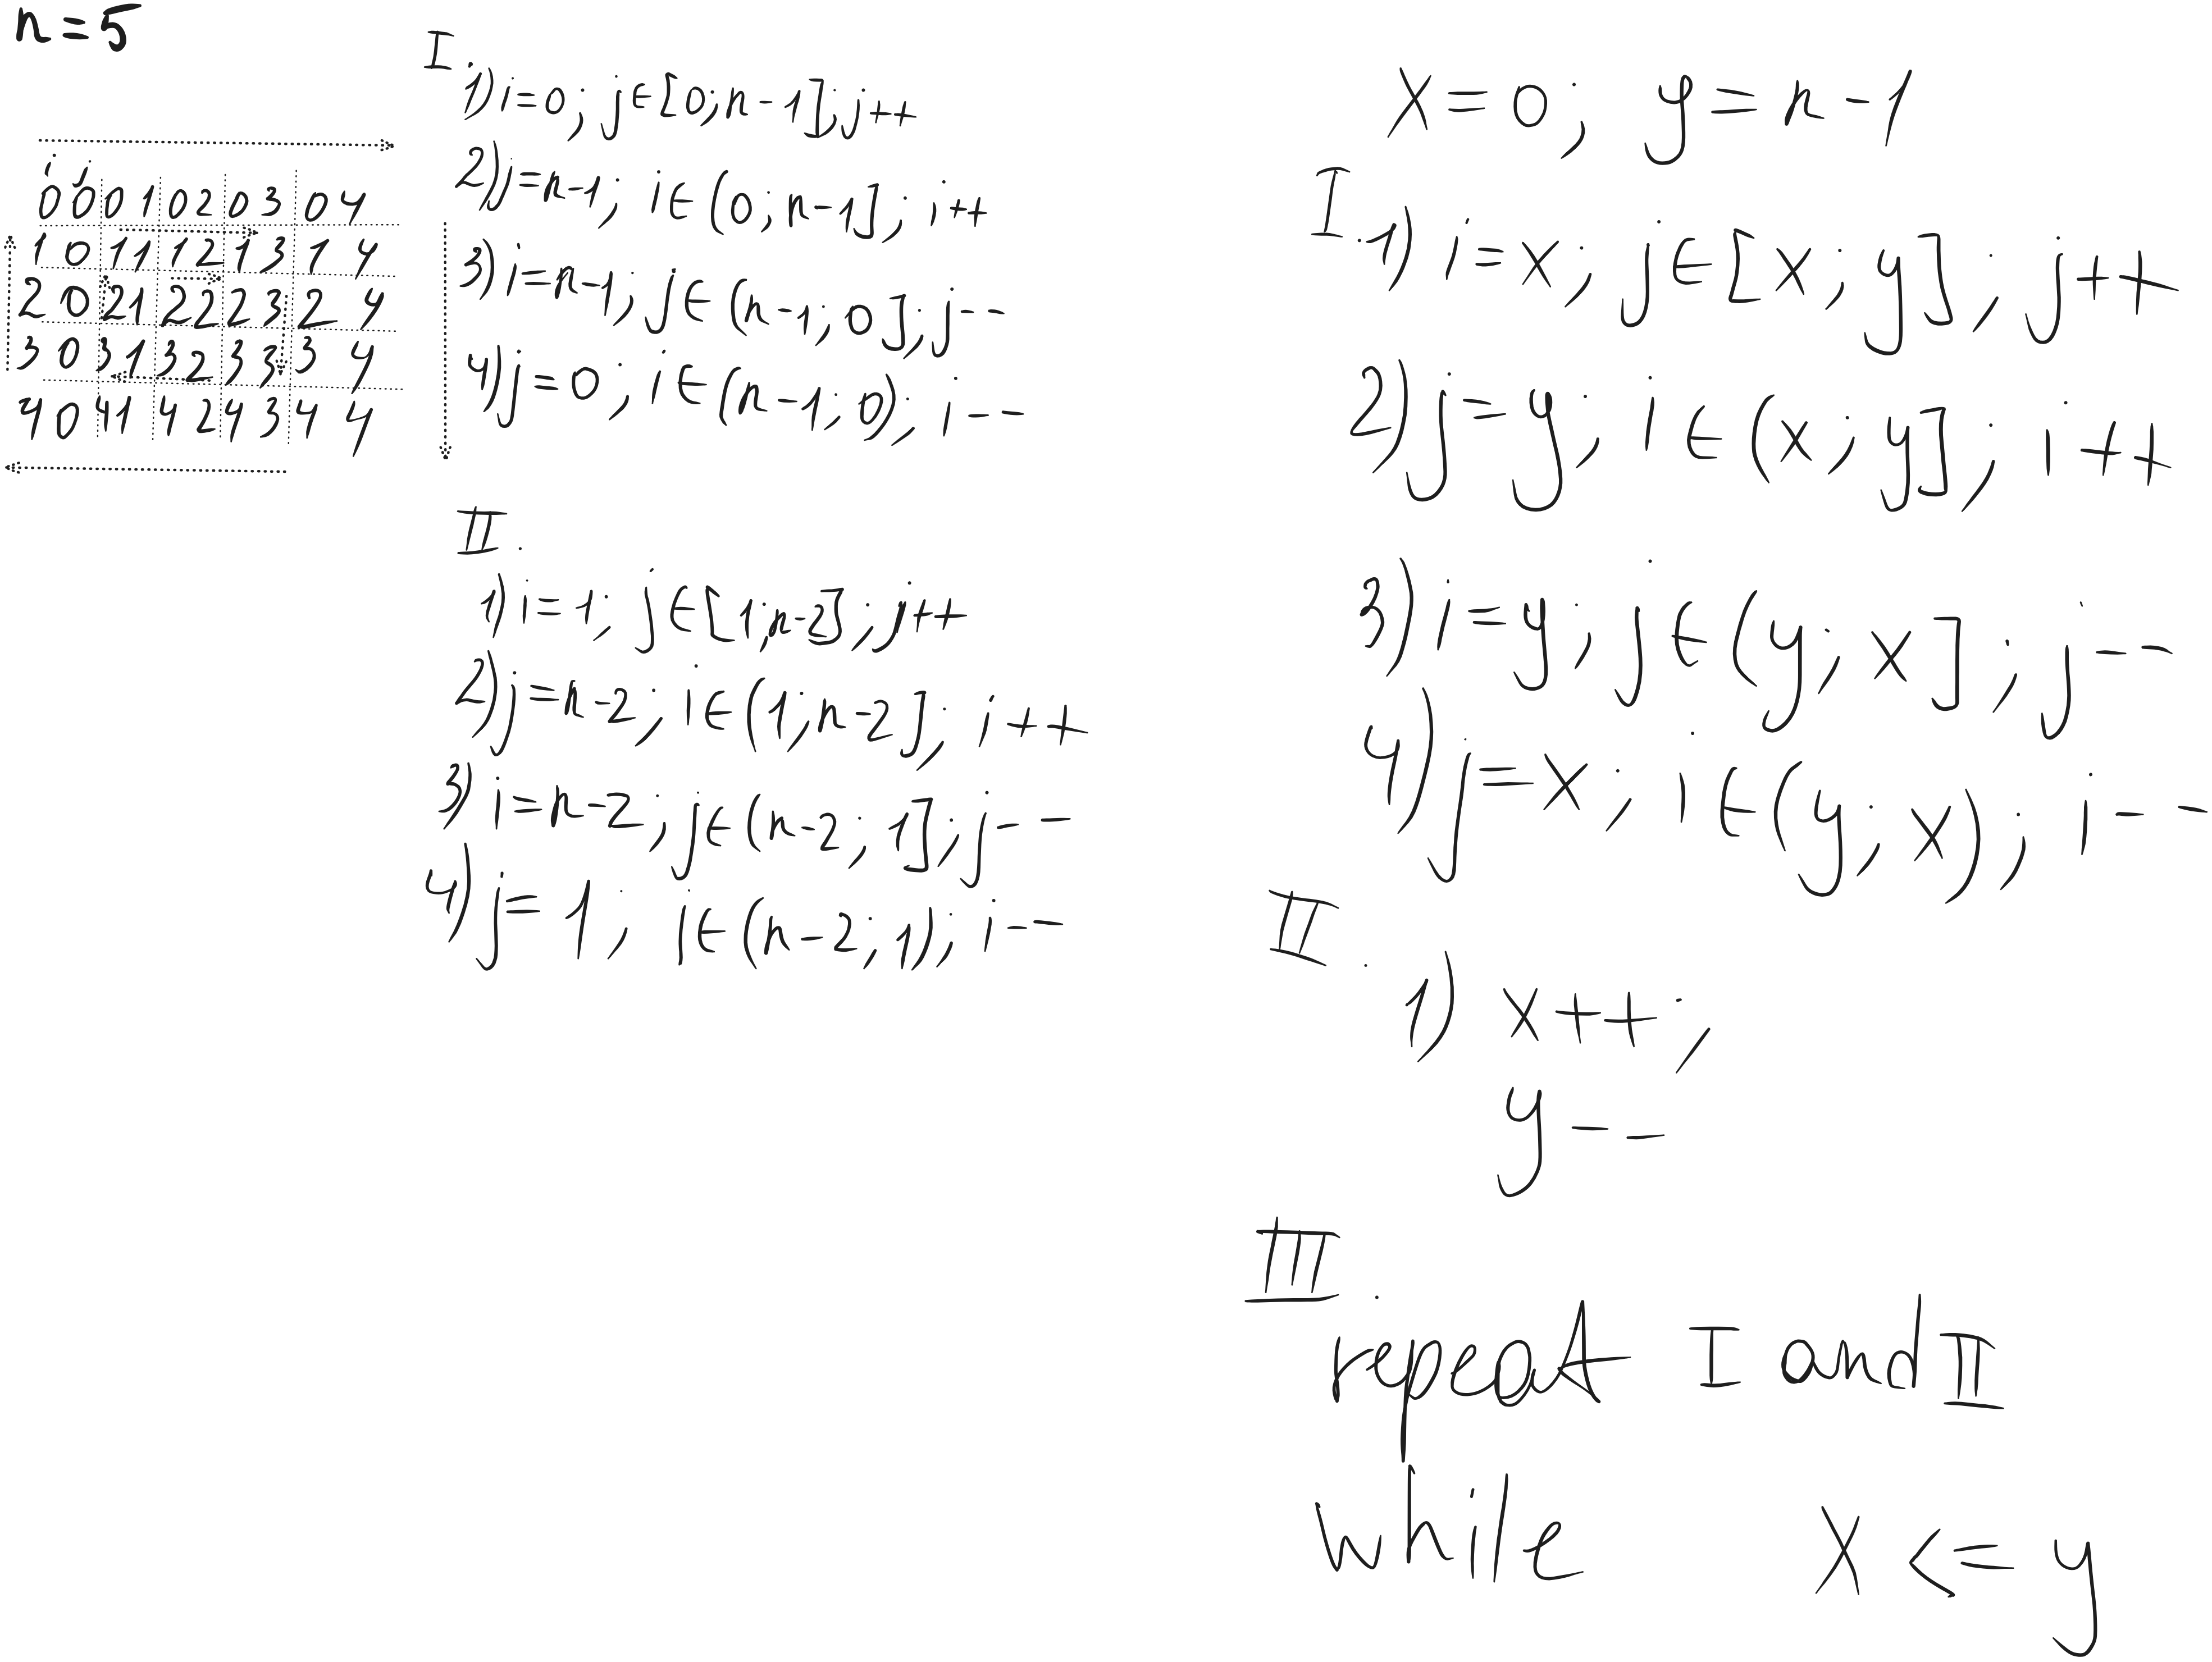 n=5
i j
0 0 0 1 0 2 0 3 0 4
1 0 1 1 1 2 1 3 1 4
2 0 2 1 2 2 2 3 2 4
3 0 3 1 3 2 3 3 3 4
4 0 4 1 4 2 4 3 4 4
I.
1) i=0; j∈[0;n-1]; j++
2) j=n-1; i∈(0;n-1]; i++
3) i=n-1; j∈(n-1;0]; j--
4) j=0; i∈(n-1;0); i--
II.
1) i=1; j∈[1;n-2]; j++
2) j=n-2; i∈(1;n-2]; i++
3) i=n-2; j∈(n-2;1]; j--
4) j=1; i∈(n-2;1); i--
x=0; y=n-1
I.
1) i=x; j∈[x;y]; j++
2) j=y; i∈(x;y]; i++
3) i=y; j∈(y;x]; j--
4) j=x; i∈(y;x); i--
II.
1) x++;
y--
III.
repeat I and II
while x<=y